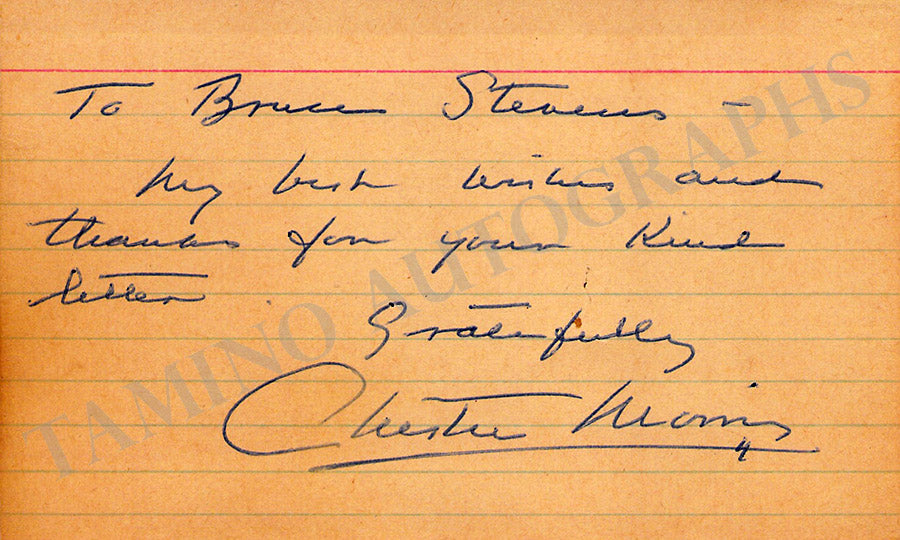 To Bruce Stevens -
My best wishes and
thanks for your kind
letter
Gratefully
Chester Morris
TAMINO AUTOGRAPHS